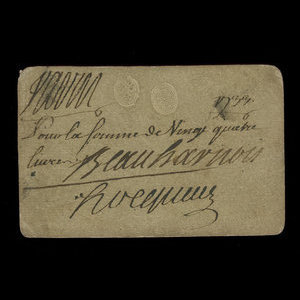 1733
Pour la somme de Vingt quatre
livres Beauharnois
Hocquart